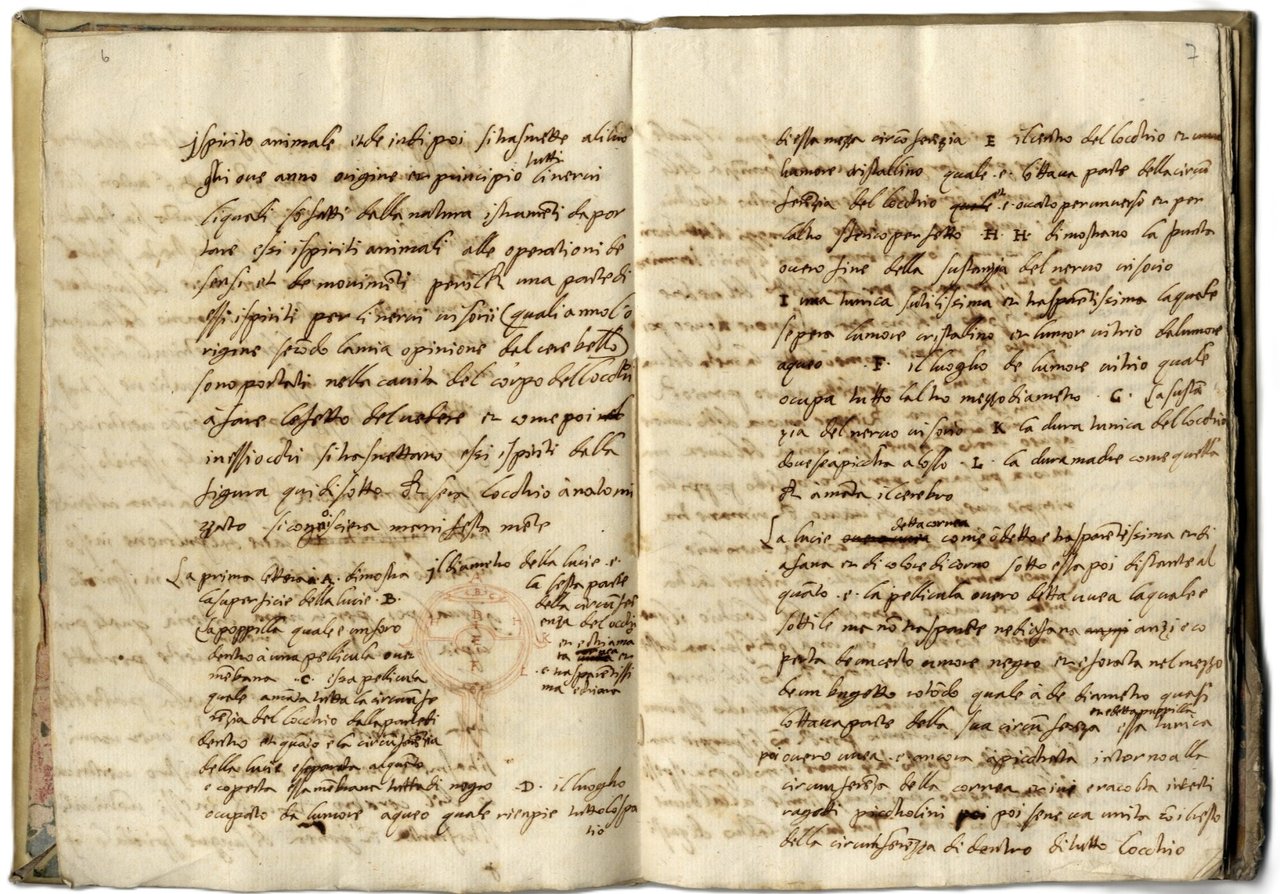 6
spirito animale et de indi poi si trasmette
ove anno origine et principio tutti li nervi
li quali so fatti dalla natura istrumenti da por
tare essi ispiriti animali alle operationi de
sensi et de movimenti una parte di
essi ispiriti per li nervi visorii (quali anno l'o
rigine secōdo la mia opinione del cerebello)
sono portati nella cavita del corpo dell occhi
à fare lefetto del vedere et come poi
in essi ochi si trasmettano essi ispiriti dalla
figura qui di sotto sera l occhio ànatomi
zzato si conosciera manifesta mēte
La prima lettera A. dimostra
la superficie della lucie . B.
la poppilla quale e un foro
dentro à una pellicula over
mēbrana . C. essa pellicula
quale amāta tutta la circunfe
rēzia del locchio dalla parte di
dentro et quāto e la circunferētia
della lucie e separata alquāto
e coperta essa mēbrana tutta di negro . D. il luogho
ocupato da lumore aqueo quale rienpie tutto lo spa
tio
il diametro della lucie . e .
la sesta parte
della circunfer
enza del occhi
et e chiama
ta cornea et
. e trasparētissi
ma e chiara
A B C
H
K
I
L
7
di essa mezza circōferezia E il centro del locchio et
humore cristallino quale . e . l ottava parte della circū
ferētia del locchio quale et . e . ovato per un verso et per
laltro sferico perfetto . H . H . dimostrano la
overo fine della sustanzia del nervo visorio
I una tunica sutilissima et trasparētissima la quale
sepera lumore cristallino et lumor vitrio da lumore
aqueo . F . il luogho de lumore vitrio quale
ocupa tutto laltro mezzo diametro . G . La sustā
zia del nervo visorio K la dura tunica del locchio
dove se apiccha a losso . L . la dura madre come quella
āmāta il cerebro
La lucie detta cornea come ò detto e trasparētissima et di
afana et di colore di corno sotto essa poi distante al
quāto . e . la pellicula overo detta uvea la quale e
sottile ma nō trasparēte ne diafana anzi e co
perta de un certo umore negro et e forata nel mezzo
de un bugetto rotōdo quale à de diametro quasi
l ottava parte della sua circūferezа et e detta puppilla essa tunica
poi overo uvea e ancora apicchata intorno alla
circunferēza della cornea raccolta in certi
raggetti picciholini poi poi sene va unita cō il resto
della circunferēza di dentro di tutto locchio